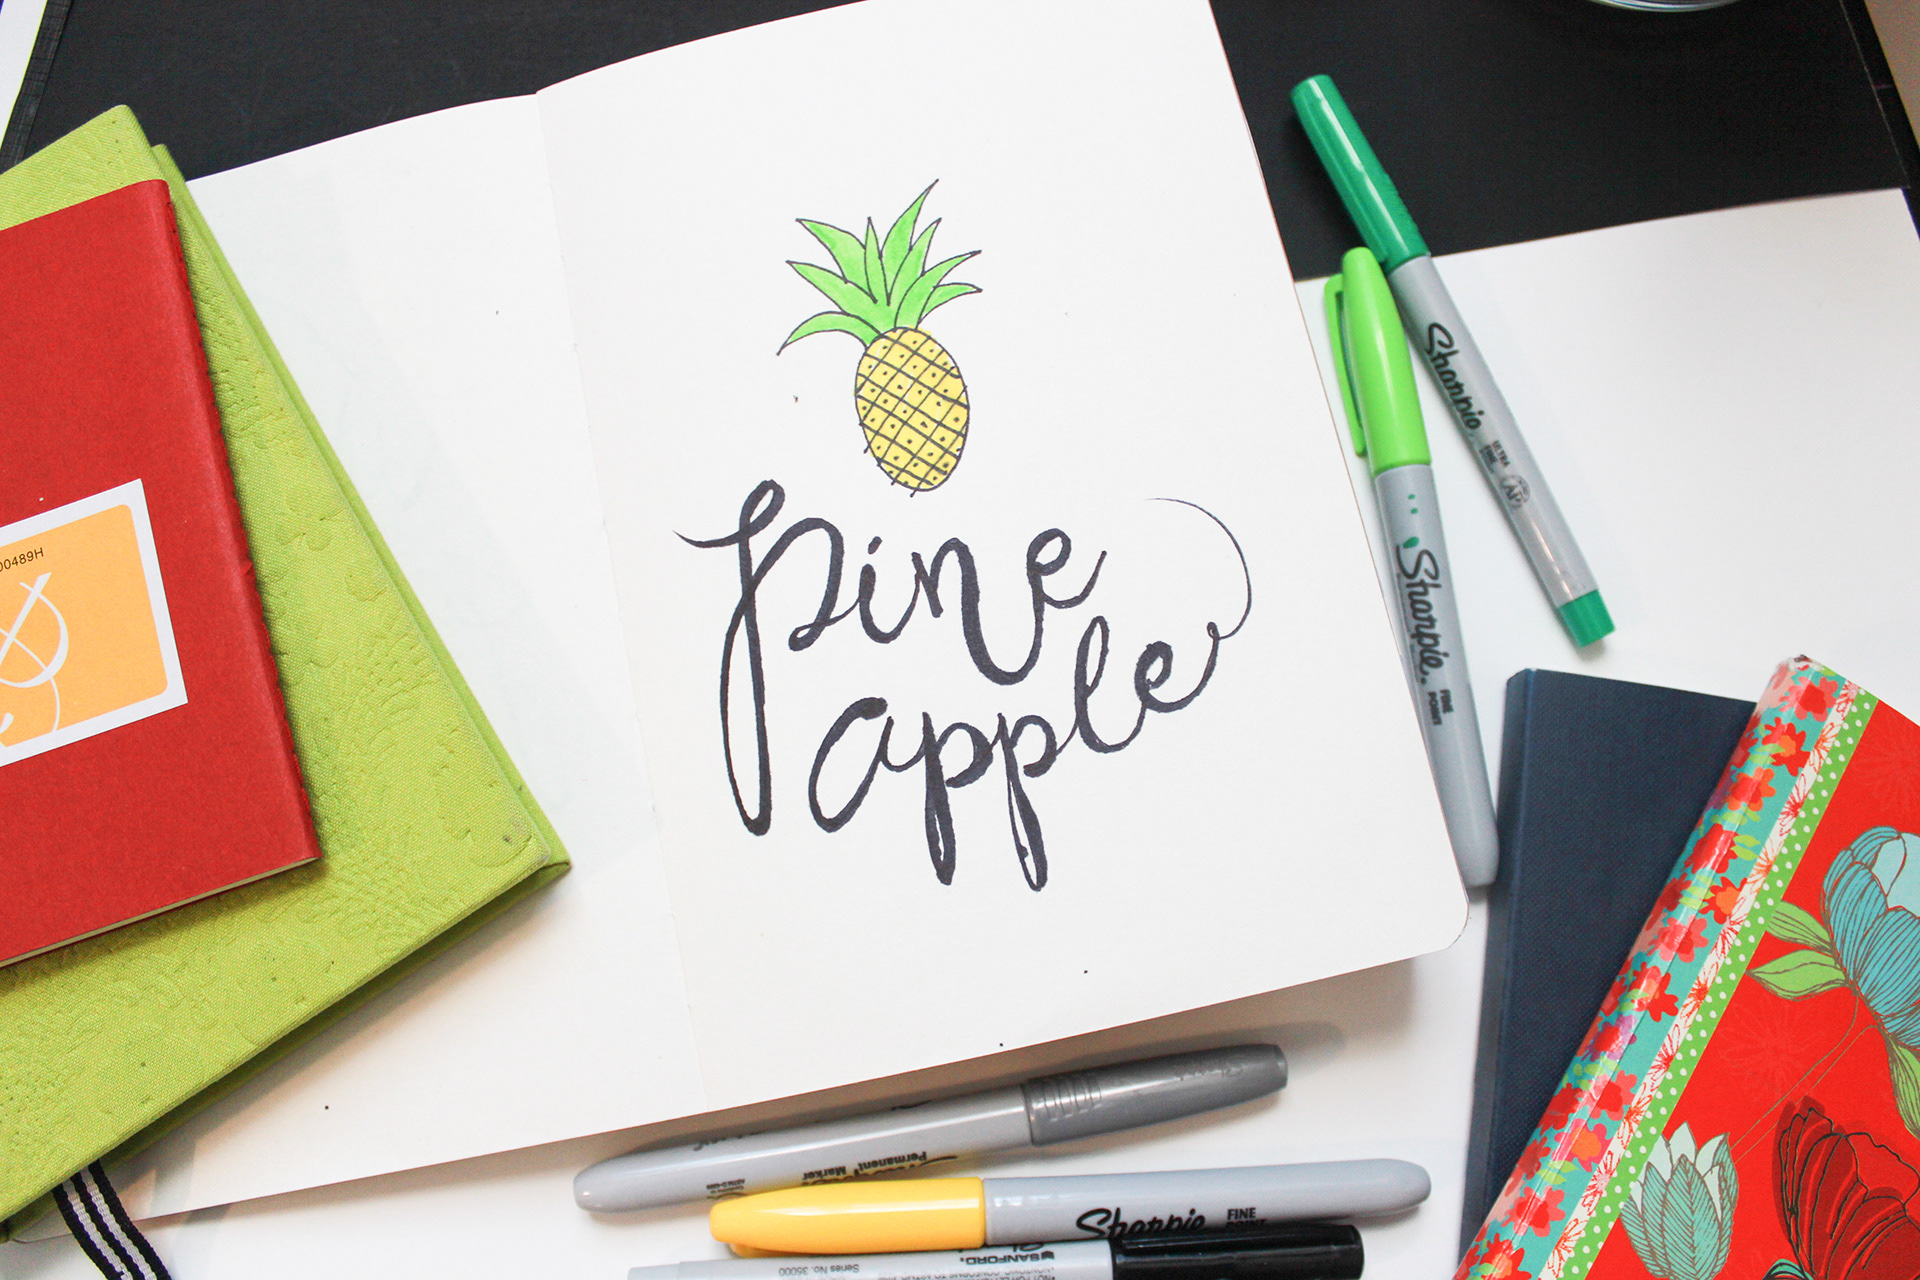 00489H
Pine
apple
Sharpie
ULTRA
FINE
AP
Sharpie.
FINE
POINT
Permanent
Marker
Sharpie
FINE
POINT
SANFORD®
Series No. 35000